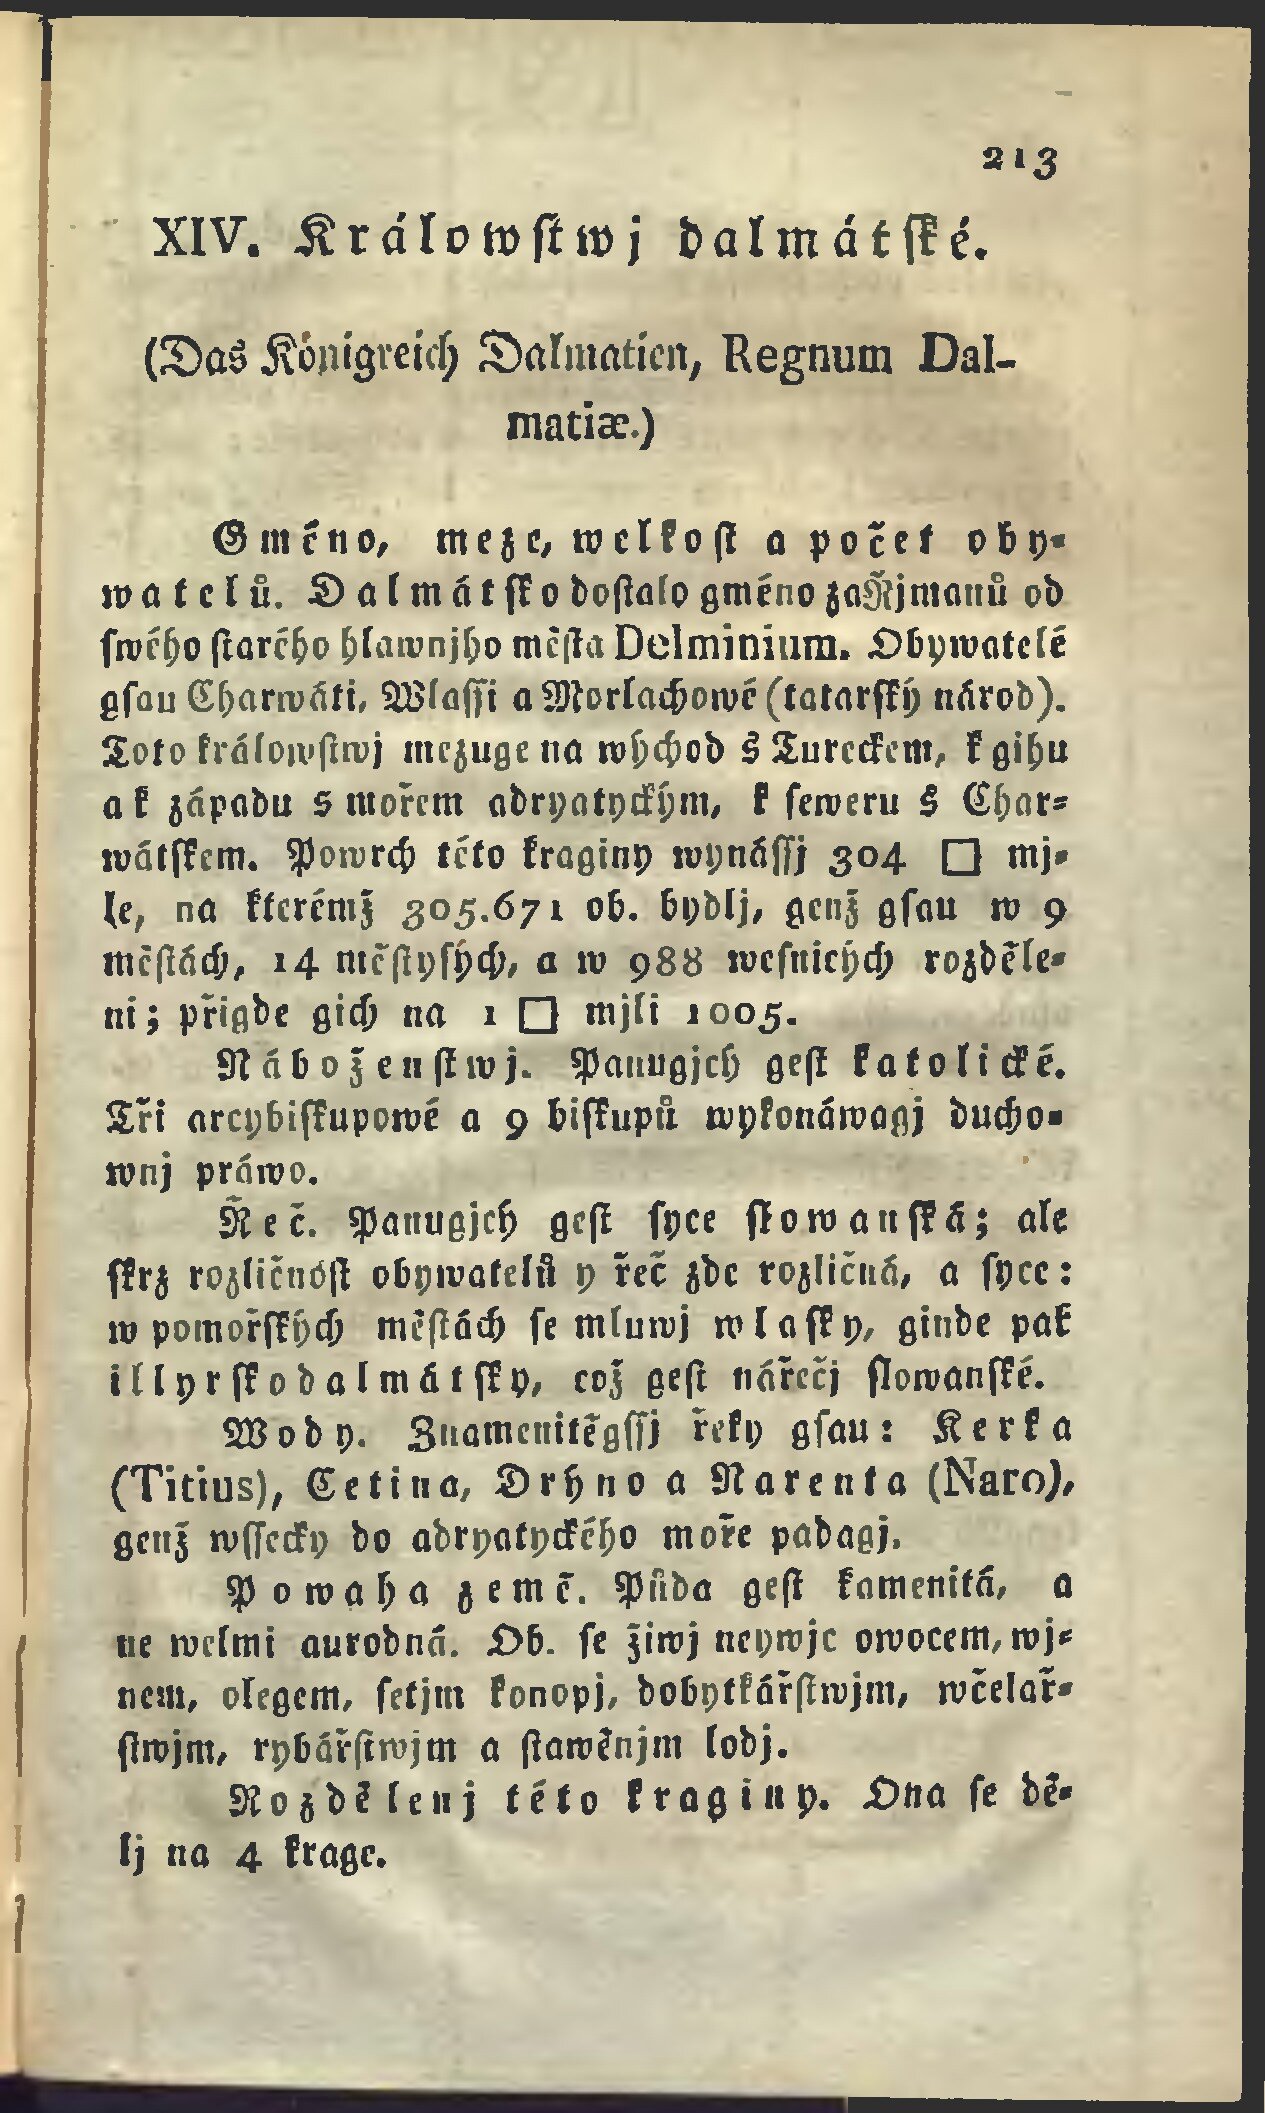 213
XIV. Králowſtwj dalmátſké.
(Das Königreich Dalmatien, Regnum Dal-
matiæ.)
Gméno, meze, welkoſt a počet oby-
watelů. Dalmátſko doſtalo gméno za Řjmanů od
ſwého ſtarého hlawnjho mēſta Delminium. Obywatelé
gſau Charwáti, Wlaſſi a Morlachowé (tatarſký národ).
Toto králowſtwj mezuge na wýchod s Tureckem, k gihu
a k západu s mořem adryatyckým, k ſeweru s Char-
wátſkem. Powrch této kraginy wynáſſj 304 □ mj-
le, na kterémž 305.671 ob. bydlj, genž gſau w 9
mēſtách, 14 mēſtyſých, a w 988 weſnicých rozdēle-
ni; přigde gich na 1 □ mjli 1005.
Náboženſtwj. Panugjcý geſt katolické.
Tři arcybiſkupowé a 9 biſkupů wykonáwagj ducho-
wnj práwo.
Řeč. Panugjcý geſt ſyce ſlowanſká; ale
ſkrz rozličnóſt obywatelů y řeč zde rozličná, a ſyce:
w pomořſkých mēſtách ſe mluwj wlaſky, ginde pak
illyrſkodalmátſky, což geſt nářečj ſlowanſké.
Wody. Znamenitēgſſj řeky gſau: Kerka
(Titius), Cetina, Drýno a Narenta (Naro),
genž wſſecky do adryatyckého moře padagj.
Powaha zemē. Půda geſt kamenitá, a
ne welmi aurodná. Ob. ſe žiwj neywjc owocem, wj-
nem, olegem, ſetjm konopj, dobytkářſtwjm, wčelař-
ſtwjm, rybářſtwjm a ſtawēnjm lodj.
Rozdēlenj této kraginy. Ona ſe dē-
lj na 4 krage.